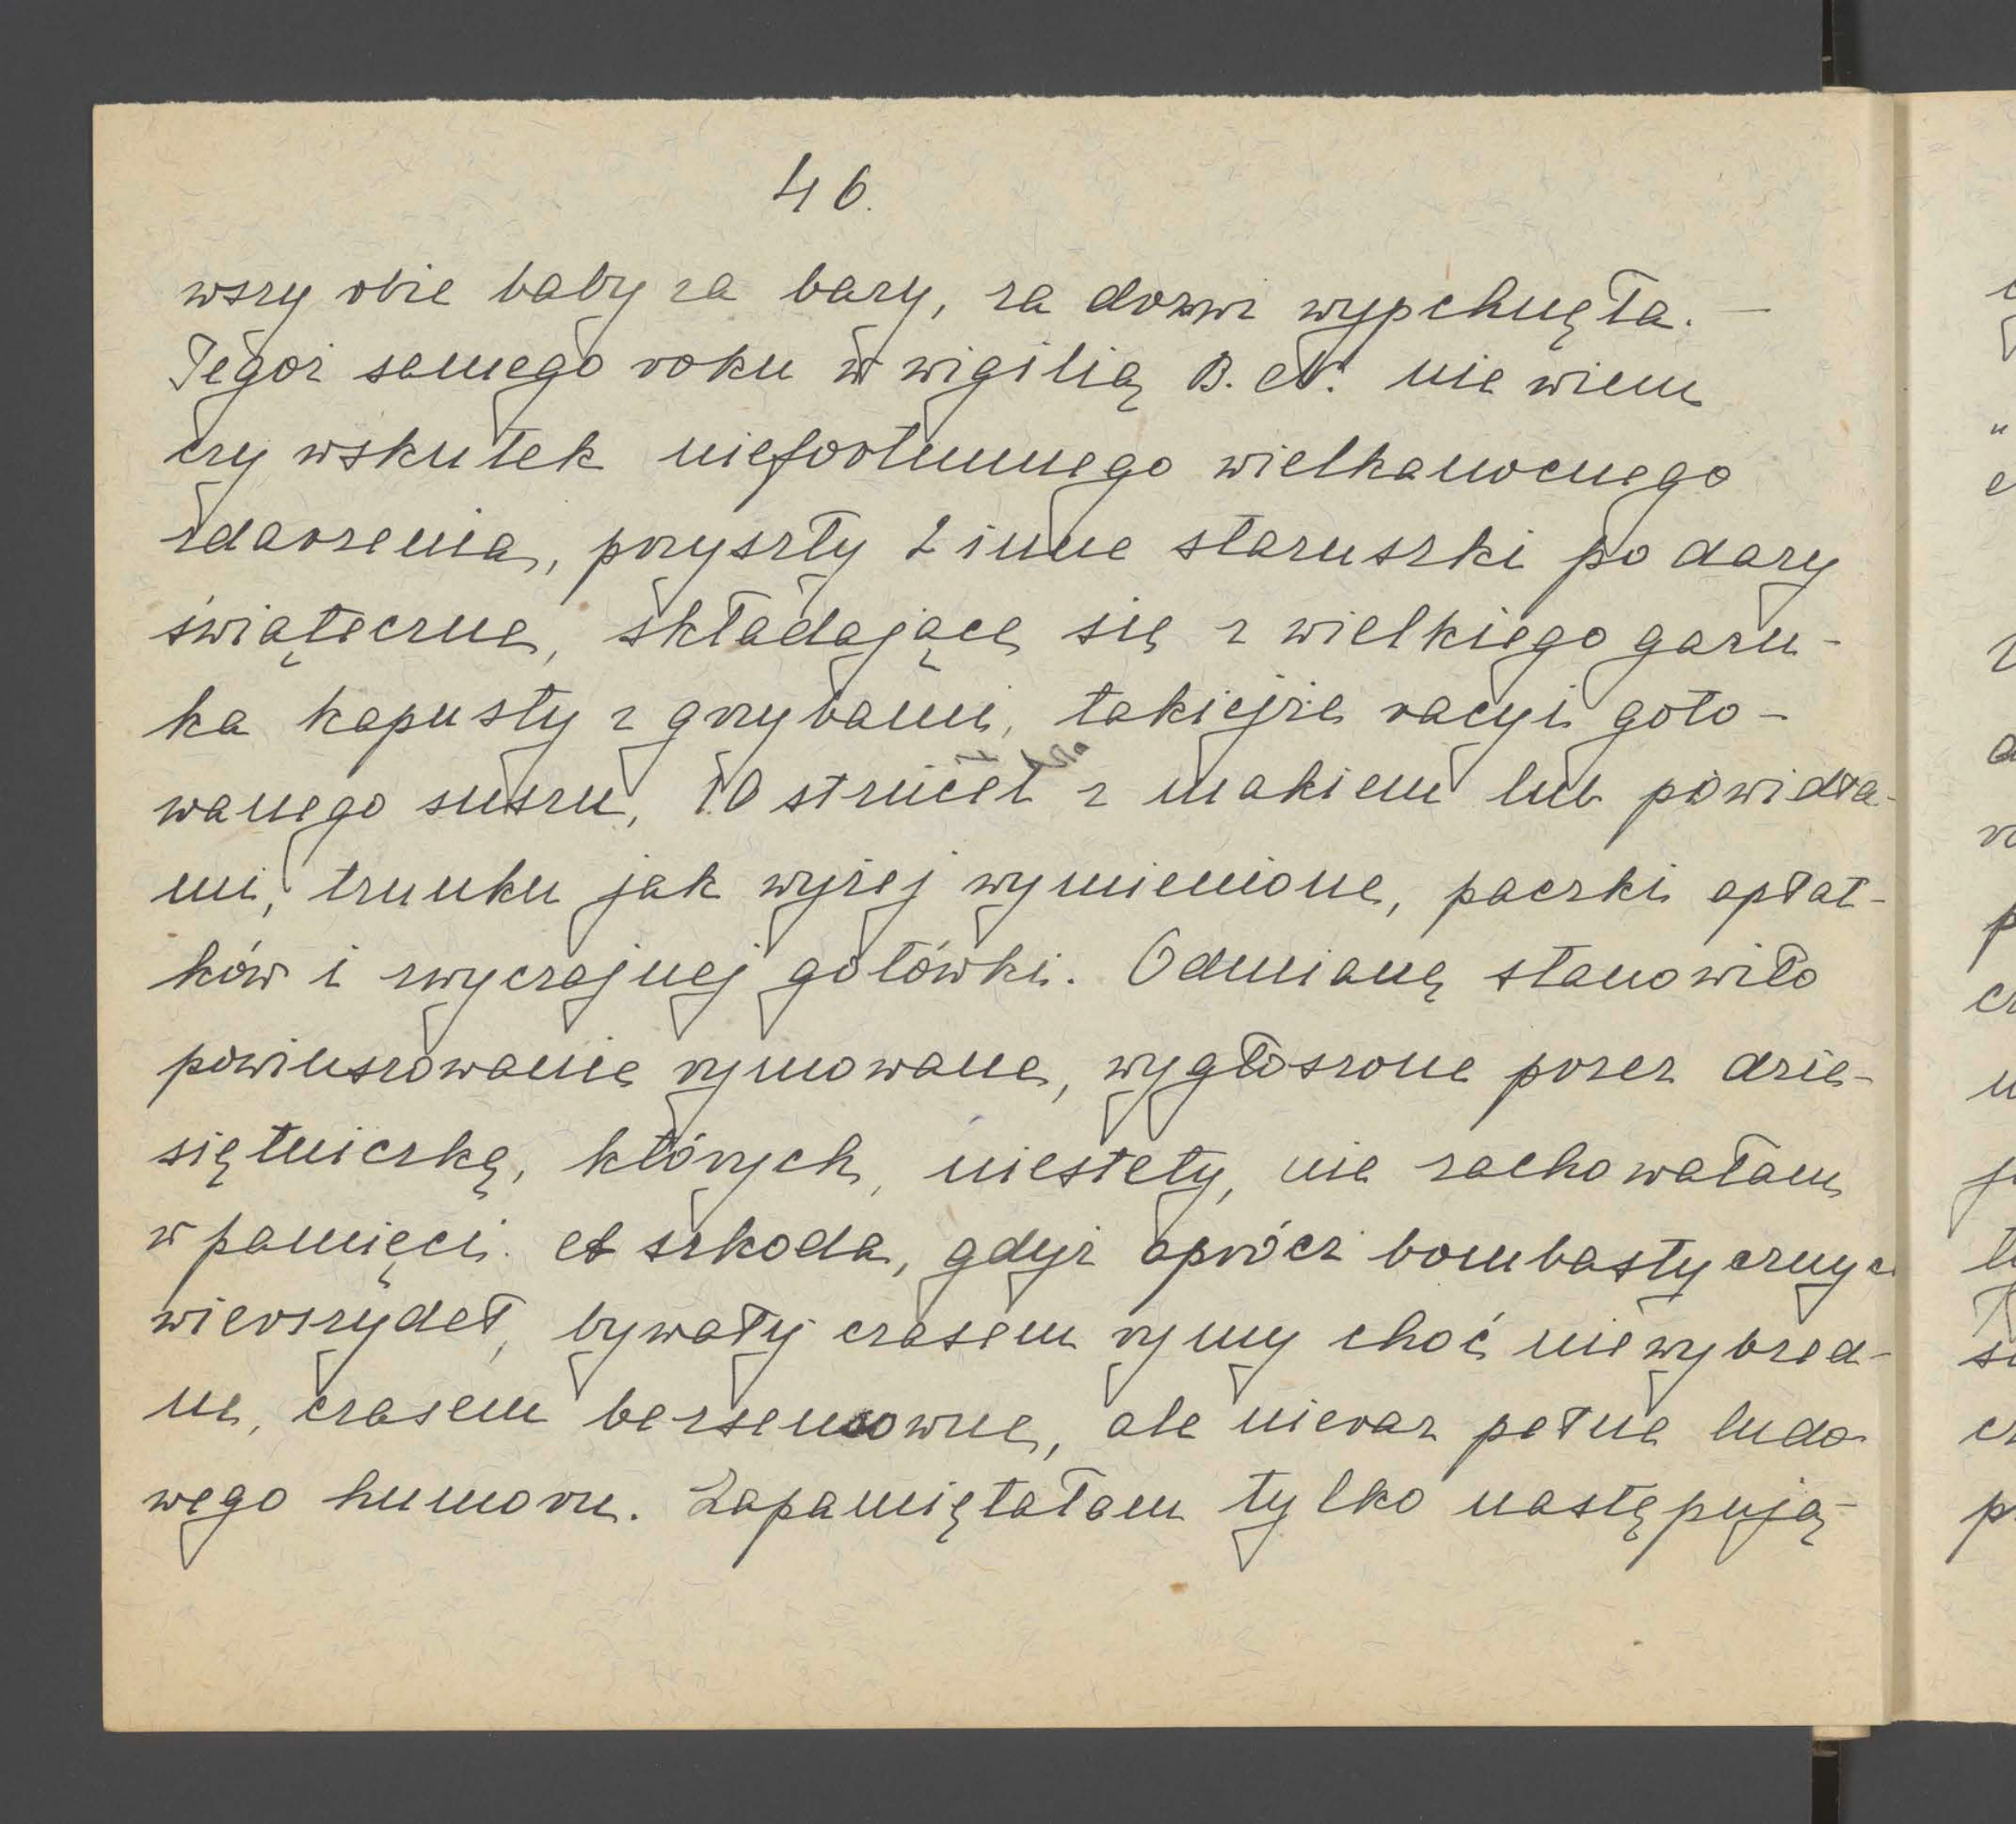 46.
wszy obie baby za bary, za drzwi wypchnęła. —
Tegoż samego roku w wigilią B. N. nie wiem
czy wskutek niefortunnego wielkanocnego
zdarzenia, przyszły 2 inne staruszki po dary
świąteczne, składające się z wielkiego garn-
ka kapusty z grzybami, takiejże racyi goto-
wanego suszu, 10 strucel z makiem lub powidła-
mi, trunku jak wyżej wymienione, paczki opłat-
ków i zwyczajnej gotówki. Odmianę stanowiło
powinszowanie rymowane, wygłoszone przez dzie-
siętniczkę, których, niestety, nie zachowałam
w pamięci. A szkoda, gdyż oprócz bombastycznyc
wierszydeł, bywały czasem rymy choć niewybred-
ne, czasem bezsensowne, ale nieraz pełne ludo-
wego humoru. Zapamiętałam tylko następują-